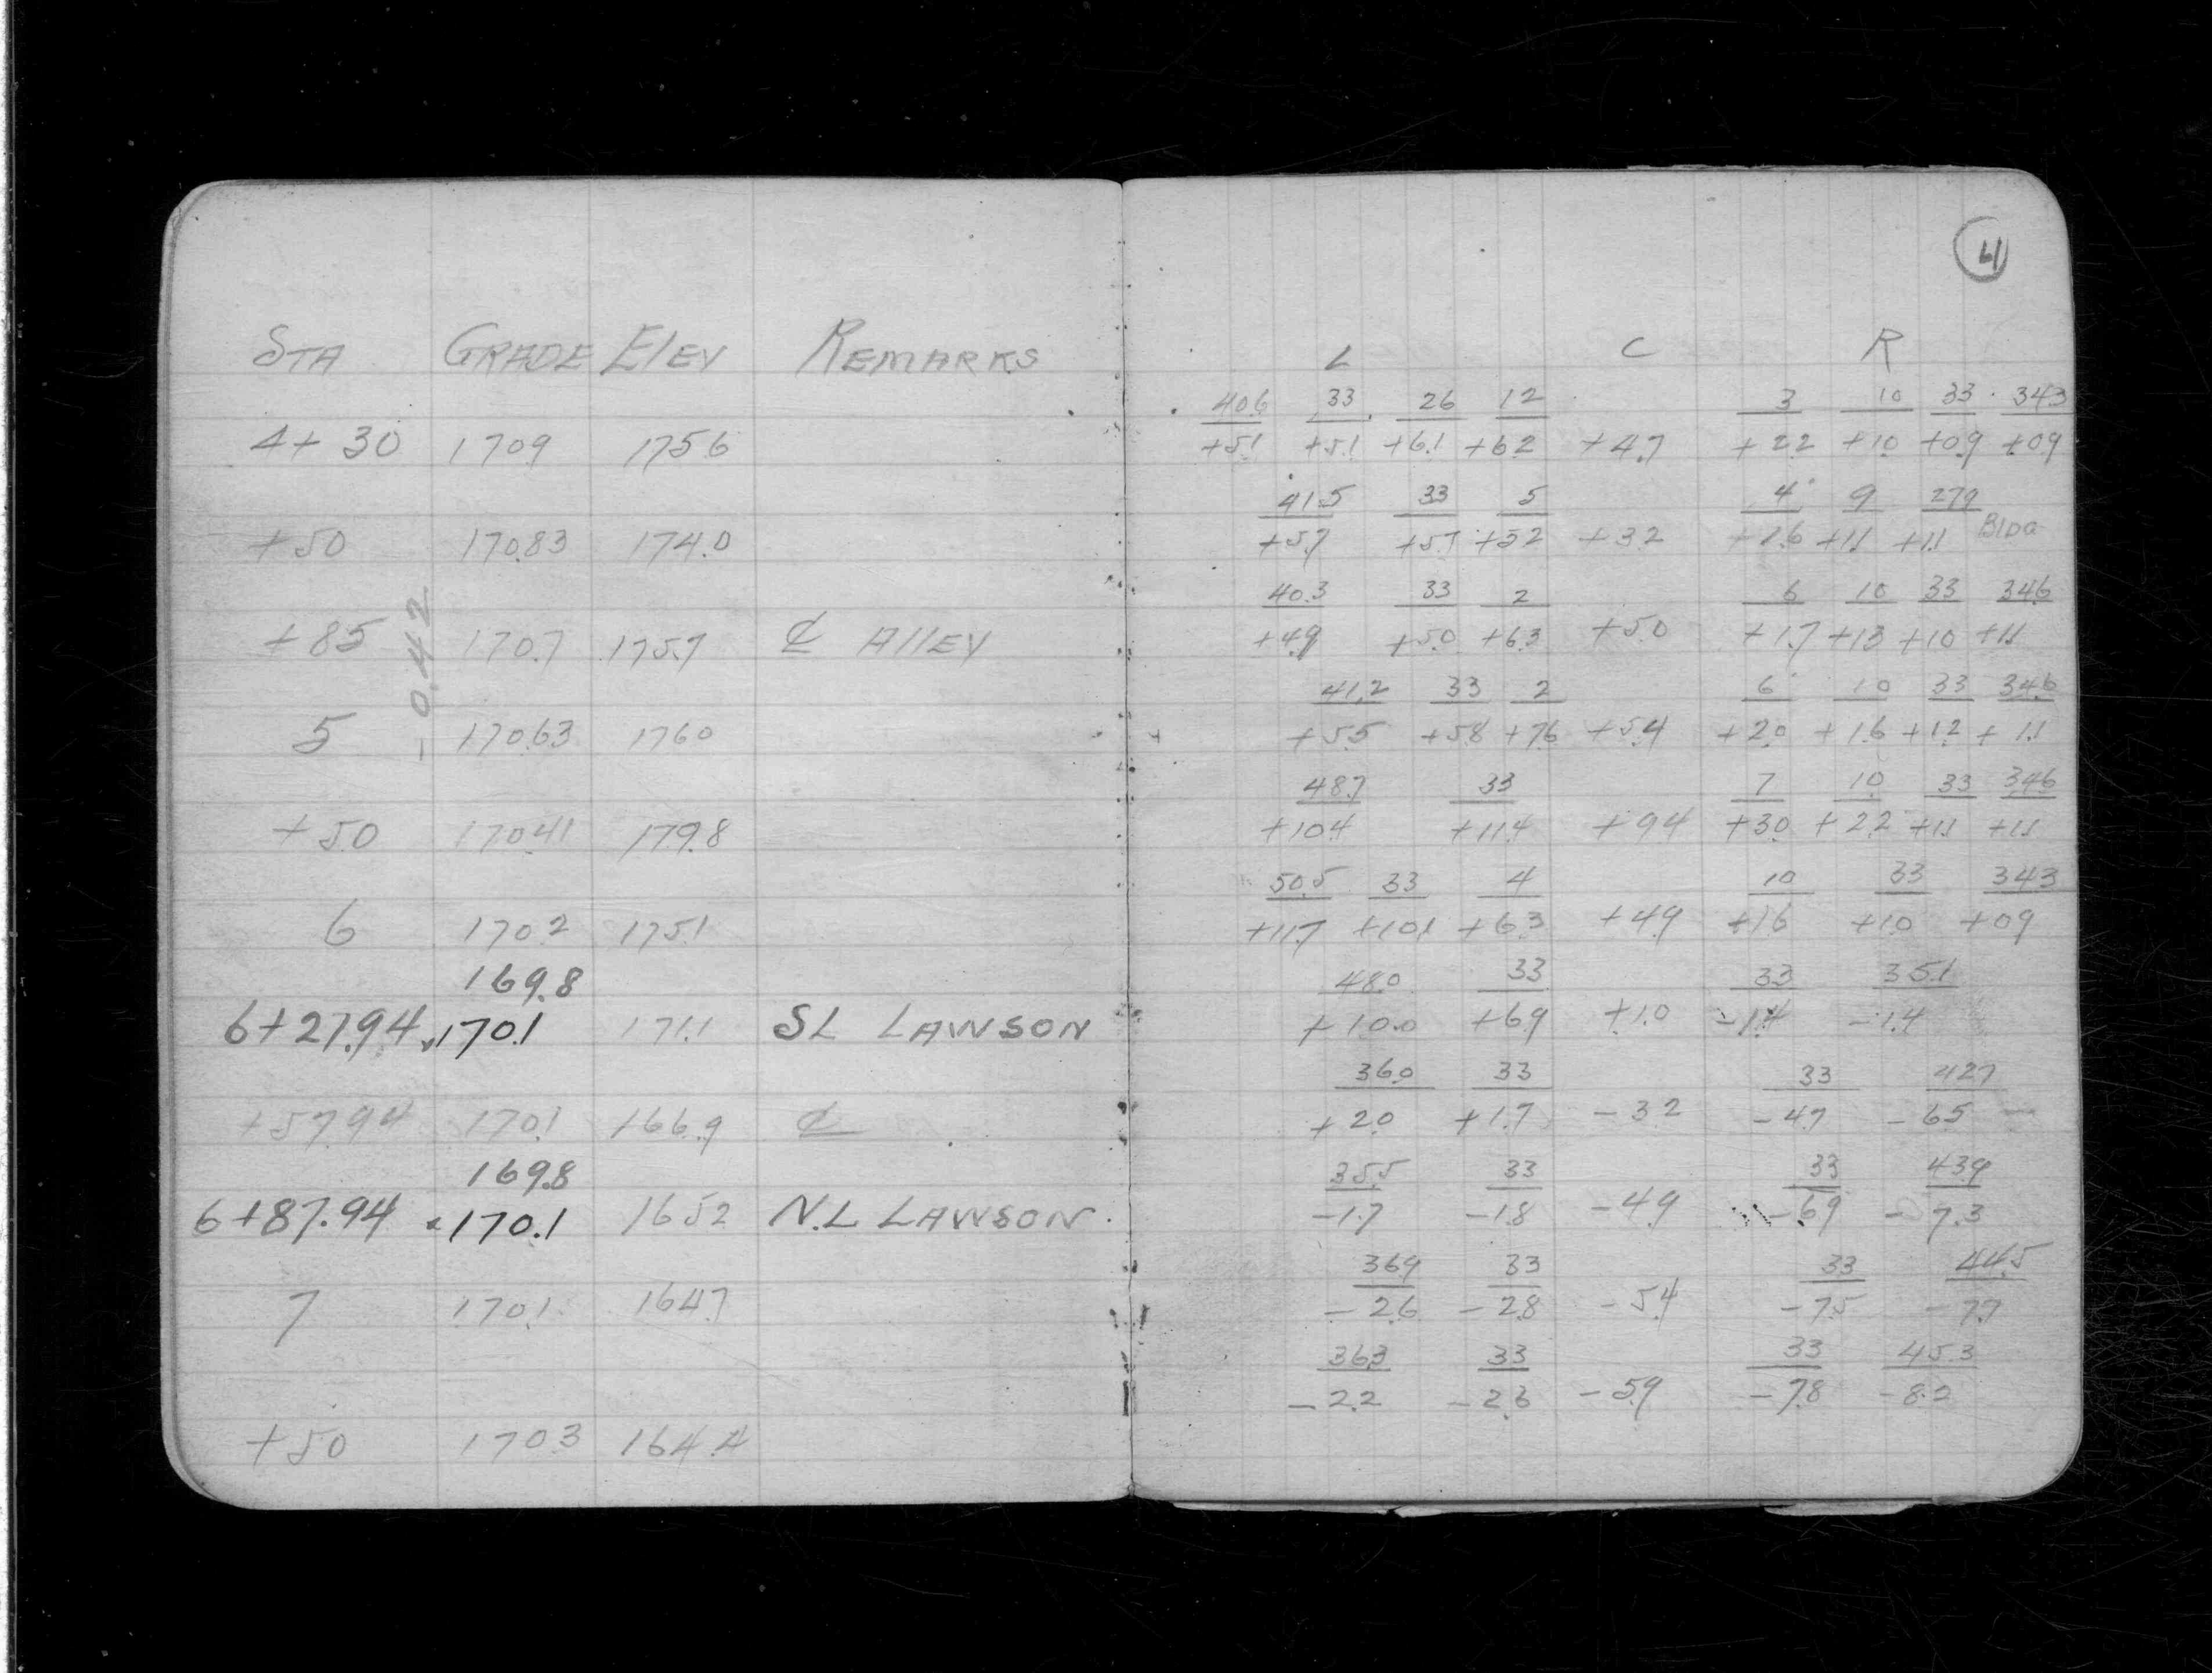 41
STA GRADE ELEV REMARKS L C R
40.6 33 26 12 3 10 33 34.3
4+30 170.9 175.6 +5.1 +5.1 +6.1 +6.2 +4.7 +2.2 +1.0 +0.9 +0.9
41.5 33 5 4 9 27.9
+50 170.83 174.0 +5.7 +5.7 +5.2 +3.2 +1.6 +1.1 +1.1 BLDG
40.3 33 2 6 10 33 34.6
+85 170.7 175.7 ℄ ALLEY +4.9 +5.0 +6.3 +5.0 +1.7 +1.3 +1.0 +1.1
-0.42
41.2 33 2 6 10 33 34.6
5 170.63 176.0 +5.5 +5.8 +7.6 +5.4 +2.0 +1.6 +1.2 +1.1
48.7 33 7 10 33 34.6
+50 170.41 179.8 +10.4 +11.4 +9.4 +3.0 +2.2 +1.1 +1.1
50.5 33 4 10 33 34.3
6 170.2 175.1 +11.7 +10.1 +6.3 +4.9 +1.6 +1.0 +0.9
169.8 48.0 33 33 35.1
6+27.94 170.1 171.1 SL LAWSON +10.0 +6.9 +1.0 -1.4 -1.4
36.0 33 33 42.7
+57.94 170.1 166.9 ℄ +2.0 +1.7 -3.2 -4.7 -6.5
169.8 35.5 33 33 43.9
6+87.94 170.1 165.2 N.L LAWSON -1.7 -1.8 -4.9 -6.9 -7.3
36.9 33 33 44.5
7 170.1 164.7 -2.6 -2.8 -5.4 -7.5 -7.7
36.3 33 33 45.3
-2.2 -2.6 -5.9 -7.8 -8.2
+50 170.3 164.4